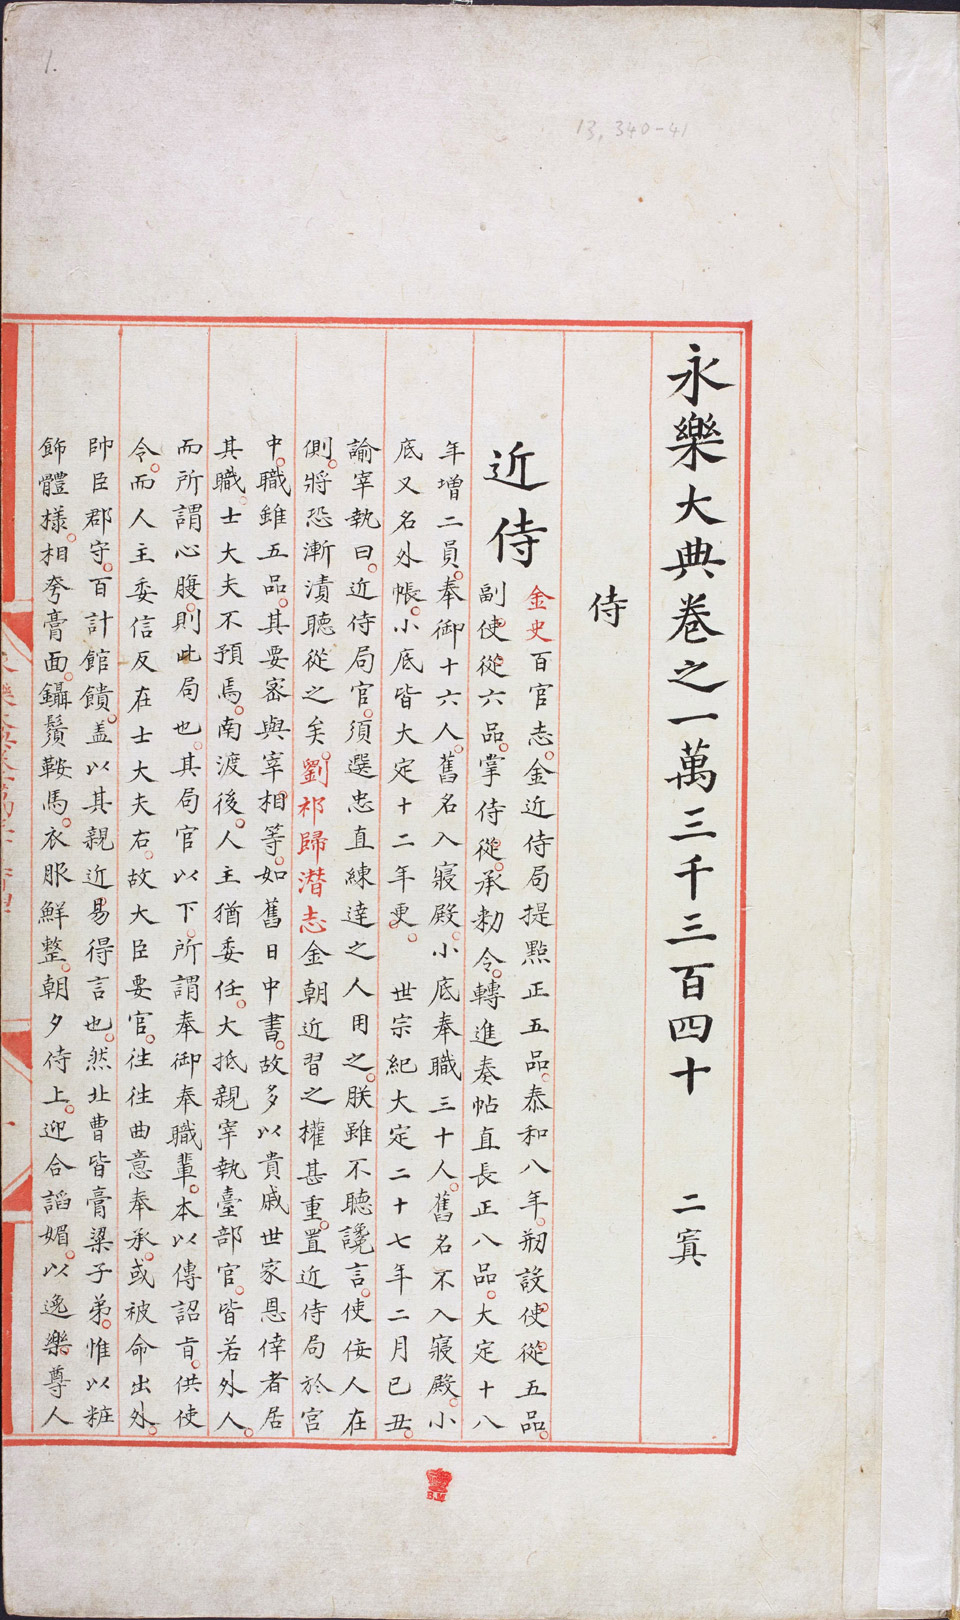 1.
13,340-41
永樂大典卷之一萬三千三百四十 二寘
侍
近侍
金史百官志。金近侍局提點正五品。泰和八年。剏設使。從五品。
副使。從六品。掌侍從。承勑令。轉進奏帖。直長正八品。大定十八
年增二員。奉御十六人。舊名入寢殿。小底奉職三十人。舊名不入寢殿。小
底又名外帳。小底皆大定十二年更。 世宗紀大定二十七年二月己丑。
諭宰執曰。近侍局官。須選忠直練達之人用之。朕雖不聽讒言。使佞人在
側。將恐漸漬聽從之矣。劉祁歸潛志金朝近習之權甚重。置近侍局於宮
中。職雖五品。其要密與宰相等。如舊日中書。故多以貴戚世家恩倖者居
其職。士大夫不預焉。南渡後。人主猶委任。大抵親宰執臺部官。皆若外人。
而所謂心腹。則此局也。其局官以下。所謂奉御奉職輩。本以傳詔旨。供使
令。而人主委信反在士大夫右。故大臣要官。往往曲意奉承。或被命出外。
帥臣郡守。百計館饋。盖以其親近易得言也。然此曹皆膏粱子弟。惟以粧
飾體樣。相夸膏面。鑷鬚鞍馬。衣服鮮整。朝夕侍上。迎合諂媚。以逸樂。尊人